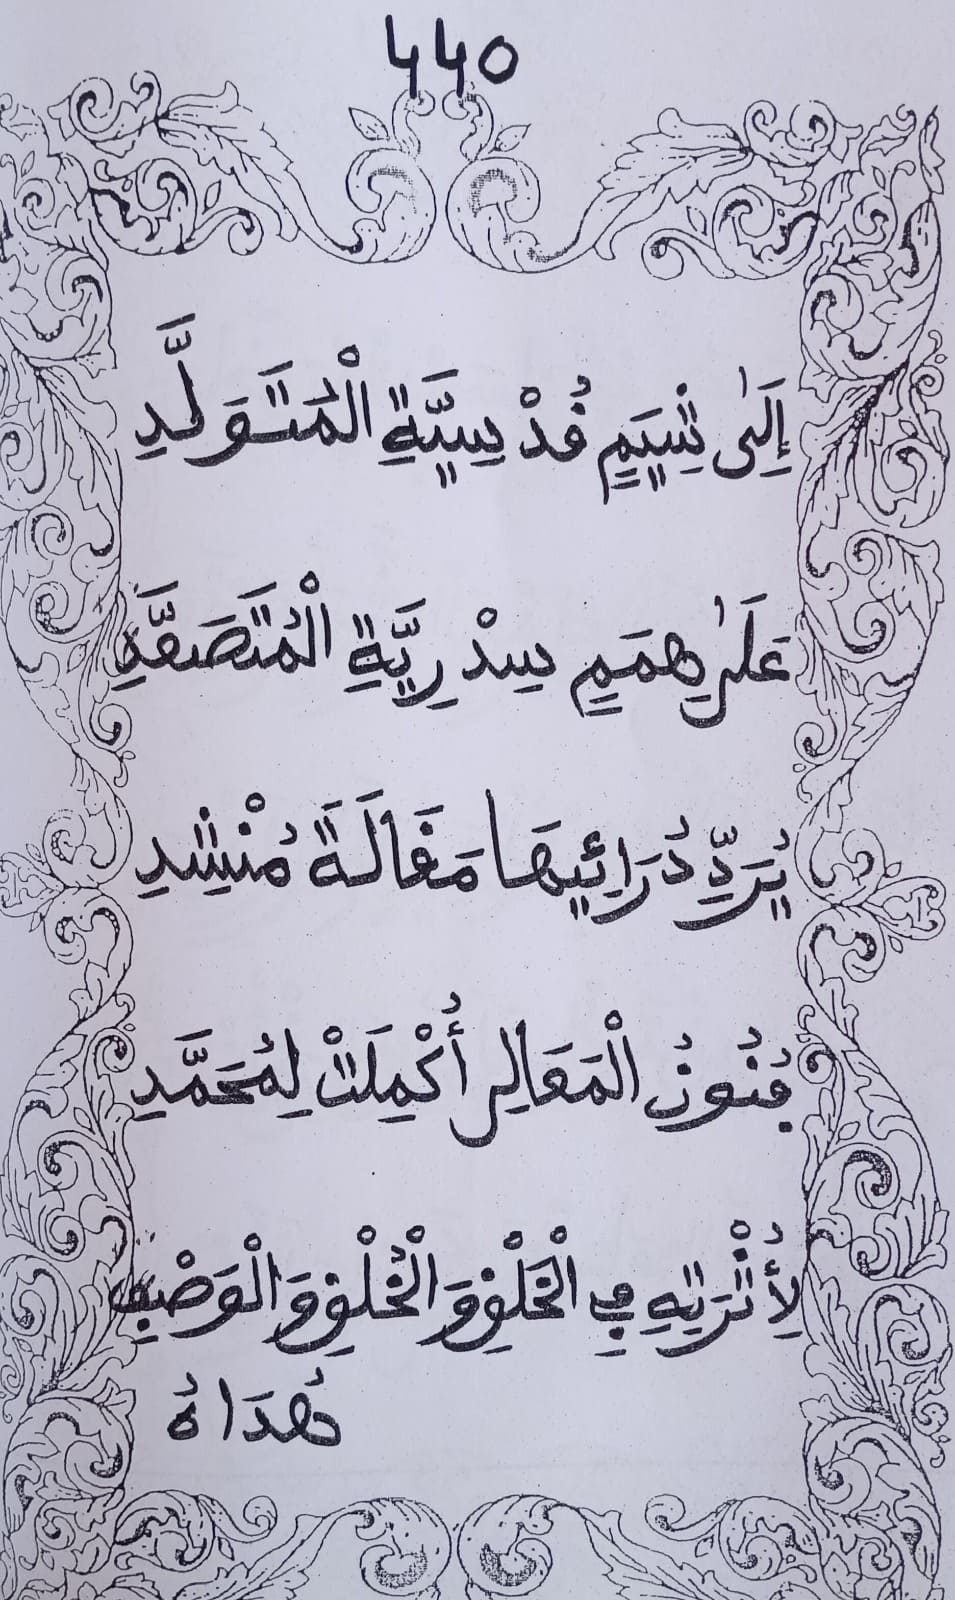 440
إِلَىٰ شِيَمٍ قُدْسِيَّةِ الْمُتَوَلَّدِ
عَلَىٰ هِمَمٍ سِدْرِيَّةِ الْمُتَصَعَّدِ
يُرَدِّدُ رَائِيهَا مَقَالَةَ مُنْشِدِ
فُنُونُ الْمَعَالِي أُكْمِلَتْ لِمُحَمَّدِ
لِأُثْرَتِهِ فِي الْخَلْقِ وَالْخُلْقِ وَالْوَصْفِ
هُدَاهُ